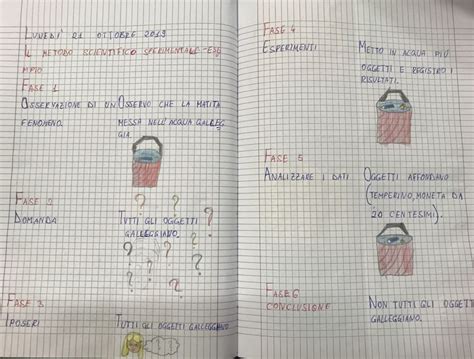 Lunedì 21 ottobre 2019
Il metodo scientifico sperimentale-ese
mpio
Fase 1
Osservazione di un Osservo che la matita
fenomeno. messa nell'acqua galleg
gia.
Fase 2
Domanda Tutti gli oggetti
galleggiano.
? ? ? ? ? ? ? ? ? ?
Fase 3
Iposeri Tutti gli oggetti galleggiano
Fase 4
Esperimenti Metto in acqua più
oggetti e registro i
risultati.
Fase 5
Analizzare i dati Oggetti affondano
(temperino, moneta da
20 centesimi).
Fase 6
conclusione Non tutti gli oggetti
galleggiano.